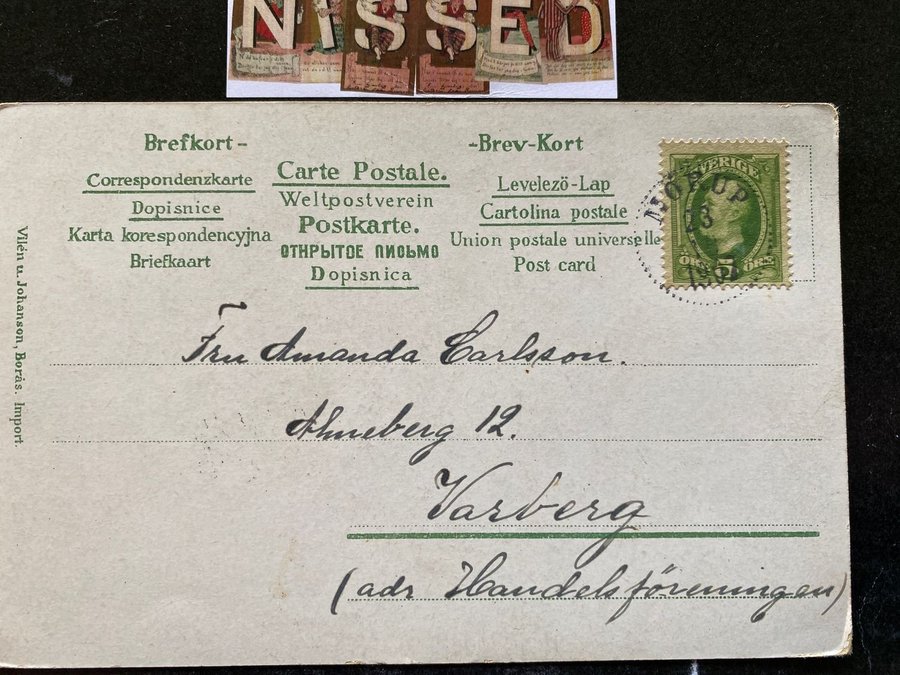 NISSED
Brefkort -
-Brev-Kort
Carte Postale.
Correspondenzkarte
Levelezö-Lap
Weltpostverein
Dopisnice
Cartolina postale
Postkarte.
Karta korespondencyjna
Union postale universelle
ОТКРЫТОЕ ПИСЬМО
Briefkaart
Post card
Dopisnica
SVERIGE
MORUP
23
ÖRE 5 ÖRE
Vilén u. Johanson, Borås. Import.
Fru Amanda Carlsson.
Ahneberg 12.
Varberg
(adr Handelsföreningen)